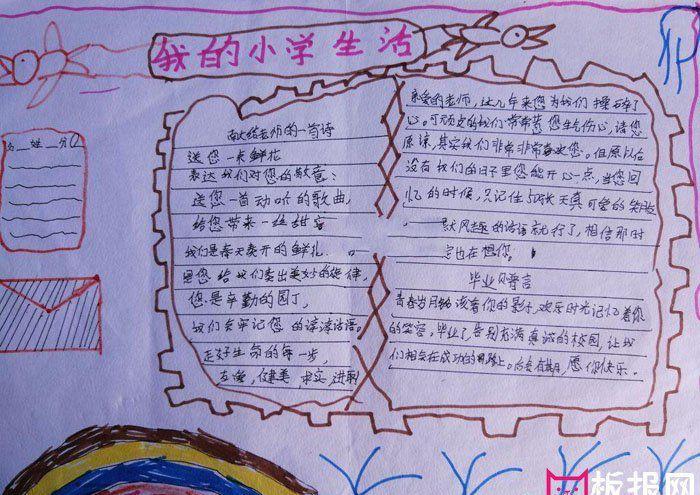 我的小学生活
姓 分
献给老师的一首诗
送您一束鲜花
表达我们对您的敬意；
送您一首动听的歌曲，
给您带来一丝甜蜜
我们是春天盛开的鲜花
是您给我们奏出美妙的旋律，
您是辛勤的园丁，
我们会牢记您的谆谆话语。
走好生命的每一步，
友爱，健美，求实，进取
亲爱的老师，这几年来您为我们操碎了
心。可顽皮的我们常常惹您生气伤心，请您
原谅，其实我们非常非常喜欢您。但愿以后
没有我们的日子里您能开心一点，当您回
忆的时候，只记住
天真可爱的笑脸
风趣的话语就行了，相信那时
定也在想你。
毕业贝尊言
青春岁月给
着你的影片，欢乐时光记忆着你
的笑容，毕业了，告别充满真诚的校园，让我
们相会在成功的
路上。后会有期，愿你快乐。
板报网